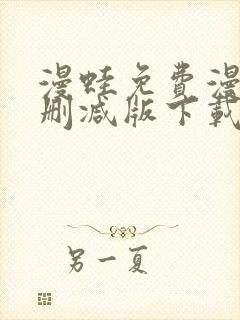 漫蛙免费漫
删减版下载
另一夏